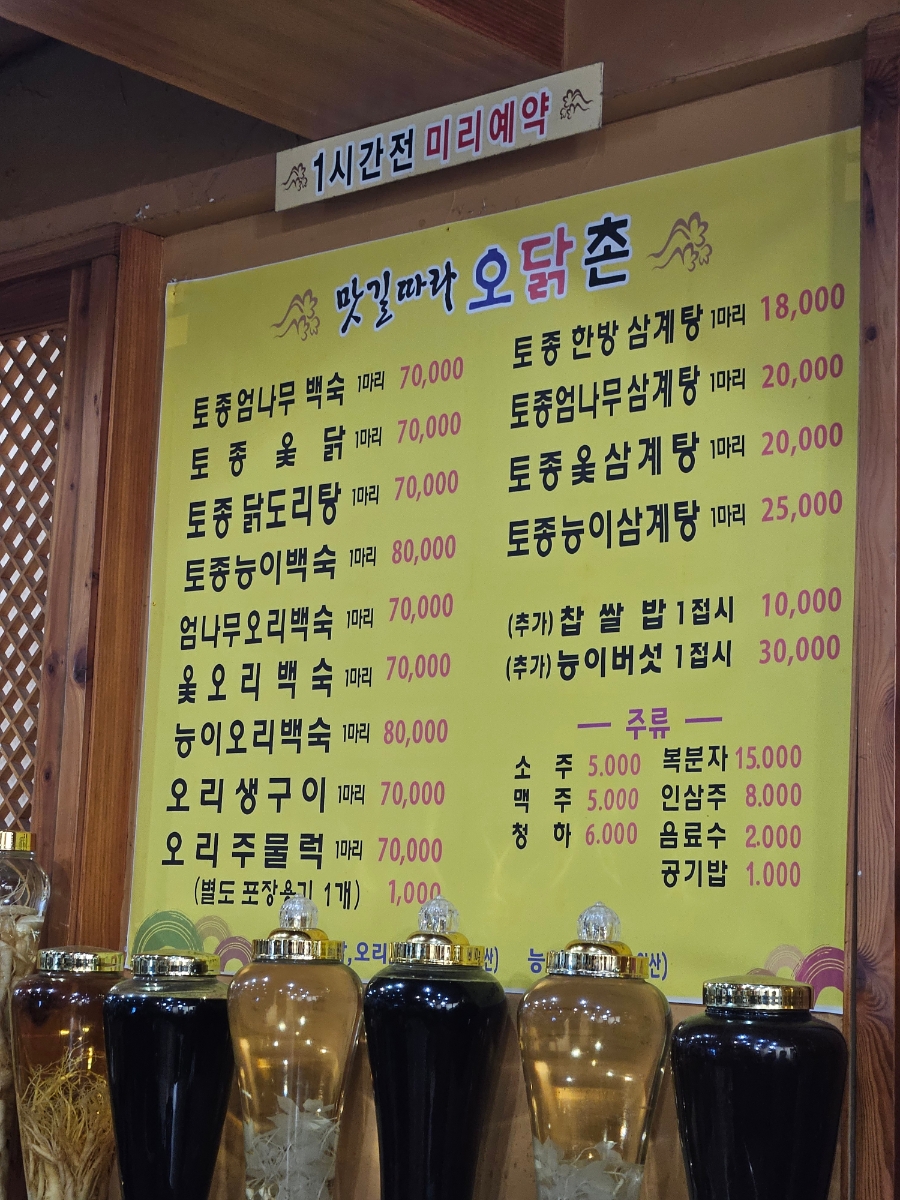 1시간전 미리예약
맛길따라 오닭촌
토종엄나무 백숙 1마리 70,000
토종 옻 닭 1마리 70,000
토종 닭도리탕 1마리 70,000
토종능이백숙 1마리 80,000
엄나무오리백숙 1마리 70,000
옻오리백숙 1마리 70,000
능이오리백숙 1마리 80,000
오리생구이 1마리 70,000
오리주물럭 1마리 70,000
(별도 포장용기 1개) 1,000
토종 한방 삼계탕 1마리 18,000
토종엄나무삼계탕 1마리 20,000
토종옻삼계탕 1마리 20,000
토종능이삼계탕 1마리 25,000
(추가) 찹쌀밥 1접시 10,000
(추가) 능이버섯 1접시 30,000
— 주류 —
소주 5.000
맥주 5.000
청하 6.000
복분자 15.000
인삼주 8.000
음료수 2.000
공기밥 1.000
,오리 산) 능 산)